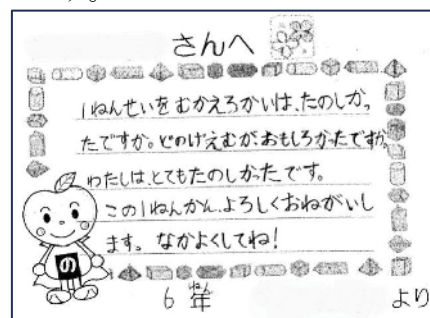 さんへ
1ねんせいをむかえるかいは、たのしかっ
たですか。どのげえむが、おもしろかったですか。
わたしは、とてもたのしかったです。
この1ねんかん、よろしくおねがいし
ます。なかよくしてね!
の
6年
ねん
より